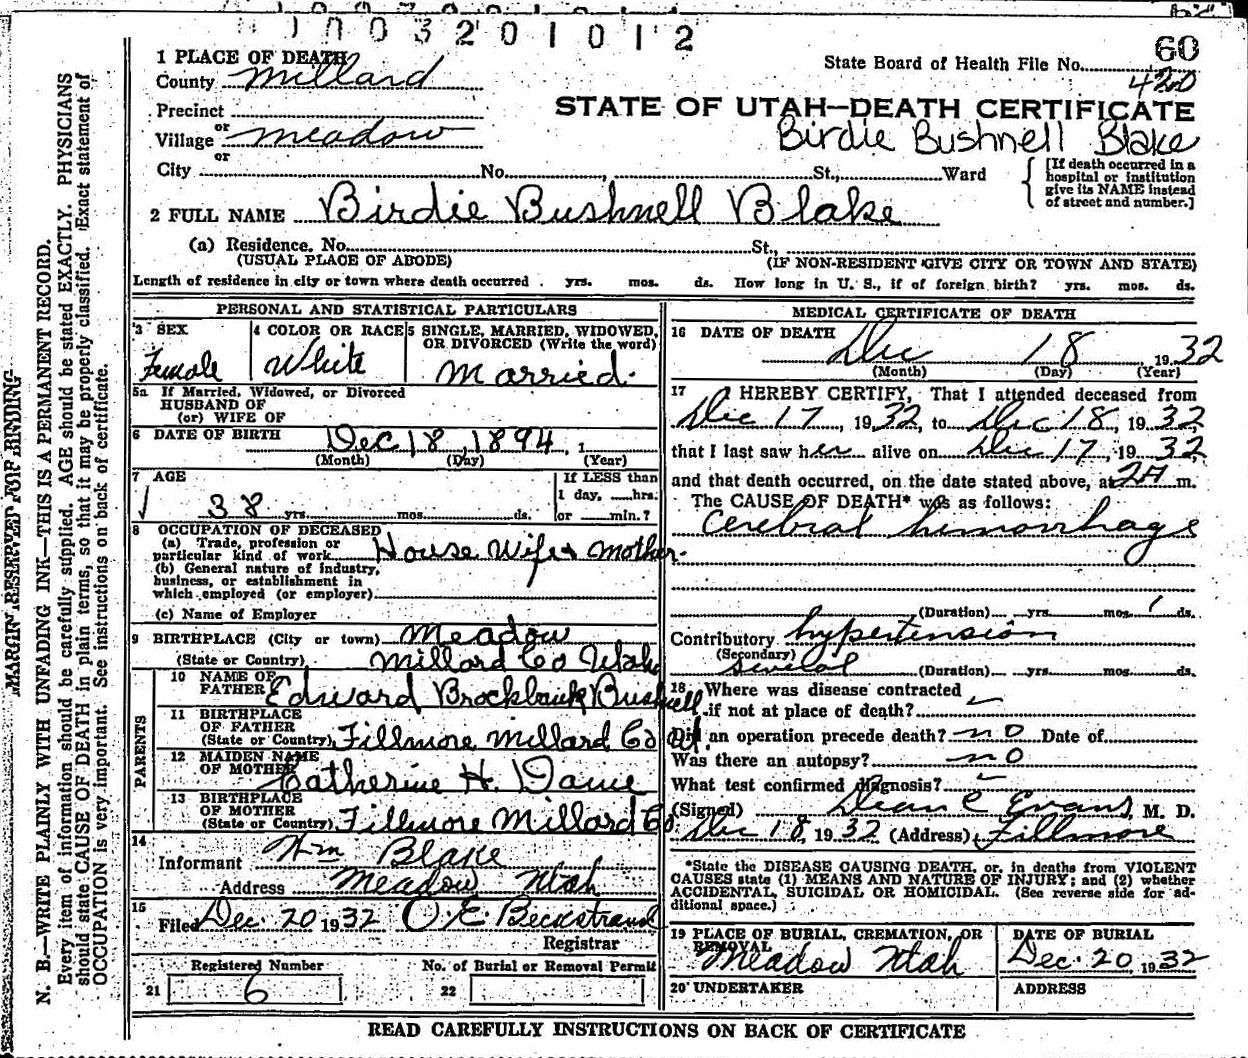 1003201012
60
State Board of Health File No.
420
1 PLACE OF DEATH
County Millard
Precinct
STATE OF UTAH—DEATH CERTIFICATE
or
Village Meadow
Birdie Bushnell Blake
or
City No. , St., Ward
[If death occurred in a
hospital or institution
give its NAME instead
of street and number.]
2 FULL NAME Birdie Bushnell Blake
(a) Residence. No. St.,
(USUAL PLACE OF ABODE) (IF NON-RESIDENT GIVE CITY OR TOWN AND STATE)
Length of residence in city or town where death occurred . yrs. mos. ds. How long in U. S., if of foreign birth? yrs. mos. ds.
PERSONAL AND STATISTICAL PARTICULARS
3 SEX
Female
4 COLOR OR RACE
White
5 SINGLE, MARRIED, WIDOWED,
OR DIVORCED (Write the word)
Married.
5a If Married, Widowed, or Divorced
HUSBAND OF
(or) WIFE OF
6 DATE OF BIRTH Dec 18, 1894, 1
(Month) (Day) (Year)
7 AGE
38 yrs. mos. ds.
If LESS than
1 day, hrs.
or min.?
8 OCCUPATION OF DECEASED
(a) Trade, profession or
particular kind of work House Wife & Mother.
(b) General nature of industry,
business, or establishment in
which employed (or employer)
(c) Name of Employer
9 BIRTHPLACE (City or town) Meadow
(State or Country) Millard Co Utah
PARENTS
10 NAME OF
FATHER Edward Brockbank Bushnell
11 BIRTHPLACE
OF FATHER
(State or Country) Fillmore Millard Co Ut.
12 MAIDEN NAME
OF MOTHER Catherine H.
13 BIRTHPLACE
OF MOTHER
(State or Country) Fillmore Millard Co
14
Informant Wm Blake
Address Meadow Utah
15
Filed Dec. 20 1932 O E Beckstrand
Registrar
21
Registered Number
6
22
No. of Burial or Removal Permit
MEDICAL CERTIFICATE OF DEATH
16 DATE OF DEATH
Dec 18 1932
(Month) (Day) (Year)
17 I HEREBY CERTIFY, That I attended deceased from
Dec 17, 1932, to Dec 18, 1932
that I last saw her alive on Dec 17, 1932,
and that death occurred, on the date stated above, at 2A m.
The CAUSE OF DEATH* was as follows:
Cerebral hemorrhage
(Duration) yrs. mos. 1 ds.
Contributory hypertension
(Secondary)
several (Duration) yrs. mos. ds.
18 Where was disease contracted
if not at place of death?
Did an operation precede death? no Date of
Was there an autopsy? no
What test confirmed diagnosis?
(Signed) Dean C Evans, M. D.
Dec 18, 1932 (Address) Fillmore
*State the DISEASE CAUSING DEATH, or, in deaths from VIOLENT
CAUSES state (1) MEANS AND NATURE OF INJURY; and (2) whether
ACCIDENTAL, SUICIDAL OR HOMICIDAL. (See reverse side for ad-
ditional space.)
19 PLACE OF BURIAL, CREMATION, OR
REMOVAL
Meadow Utah
DATE OF BURIAL
Dec. 20, 1932
20 UNDERTAKER
ADDRESS
READ CAREFULLY INSTRUCTIONS ON BACK OF CERTIFICATE
MARGIN RESERVED FOR BINDING
N. B.—WRITE PLAINLY WITH UNFADING INK—THIS IS A PERMANENT RECORD.
Every item of information should be carefully supplied. AGE should be stated EXACTLY. PHYSICIANS
should state CAUSE OF DEATH in plain terms, so that it may be properly classified. Exact statement of
OCCUPATION is very important. See instructions on back of certificate.